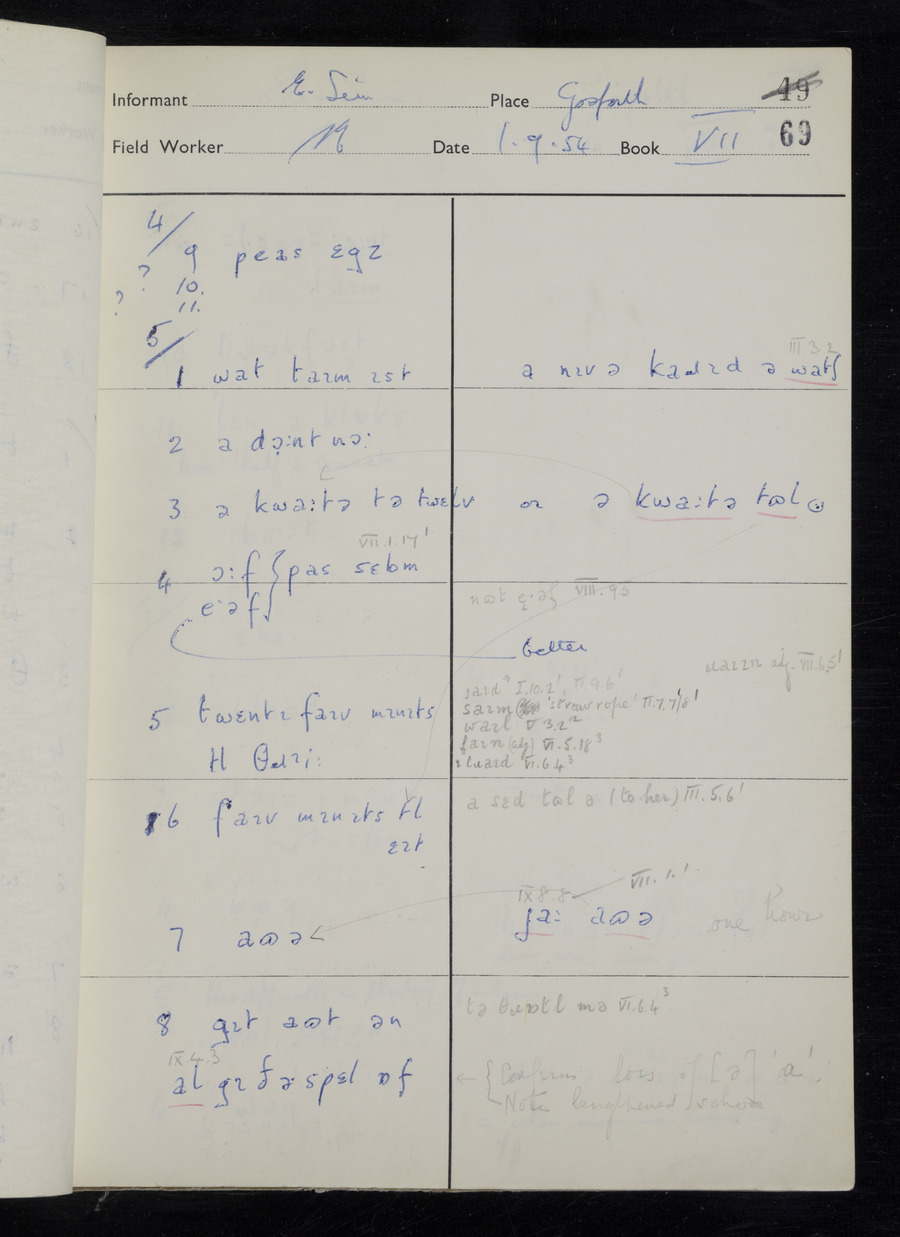 Informant E. Place Gosforth 49
Field Worker Date 1.9.54 Book VII 69
4/
9 peəs ɛgz
? 10.
? 11.
5/
III 3.2
1 wat taɪm ɪst a nɪvə kaɹɪd ə watʃ
2 a dọ:nt nə:
3 ə kwa:tə tə twɛlv or ə kwa:tə tɷl ə
VII.1.17'
4 ɔ:f } pas sɛbm
e·əf
VIII. 9.5
better
adj. VII.6.5'
5 twɛntɪ faɪv mɪnɪts
tl θɹɪi:
saɪd I.10.2', II.9.6'
saɪm 'straw rope' II.7.7/8'
waɪl V 3.2²
faɪn (adj) VI.5.18³
VI.6.4³
6 faɪv mɪnɪts tl
ɛɪt
a sɛd tɷl ə (to her) III.5.6'
IX.8.8 VII.1.1'
7 aɷə ja: aɷə one hour
8 gɪt aɷt ən
tə mə VI.6.4³
IX.4.3
al gɪ ðə spɛl ɒf
← { Confirms loss of [ə] 'a'.
Note lengthened